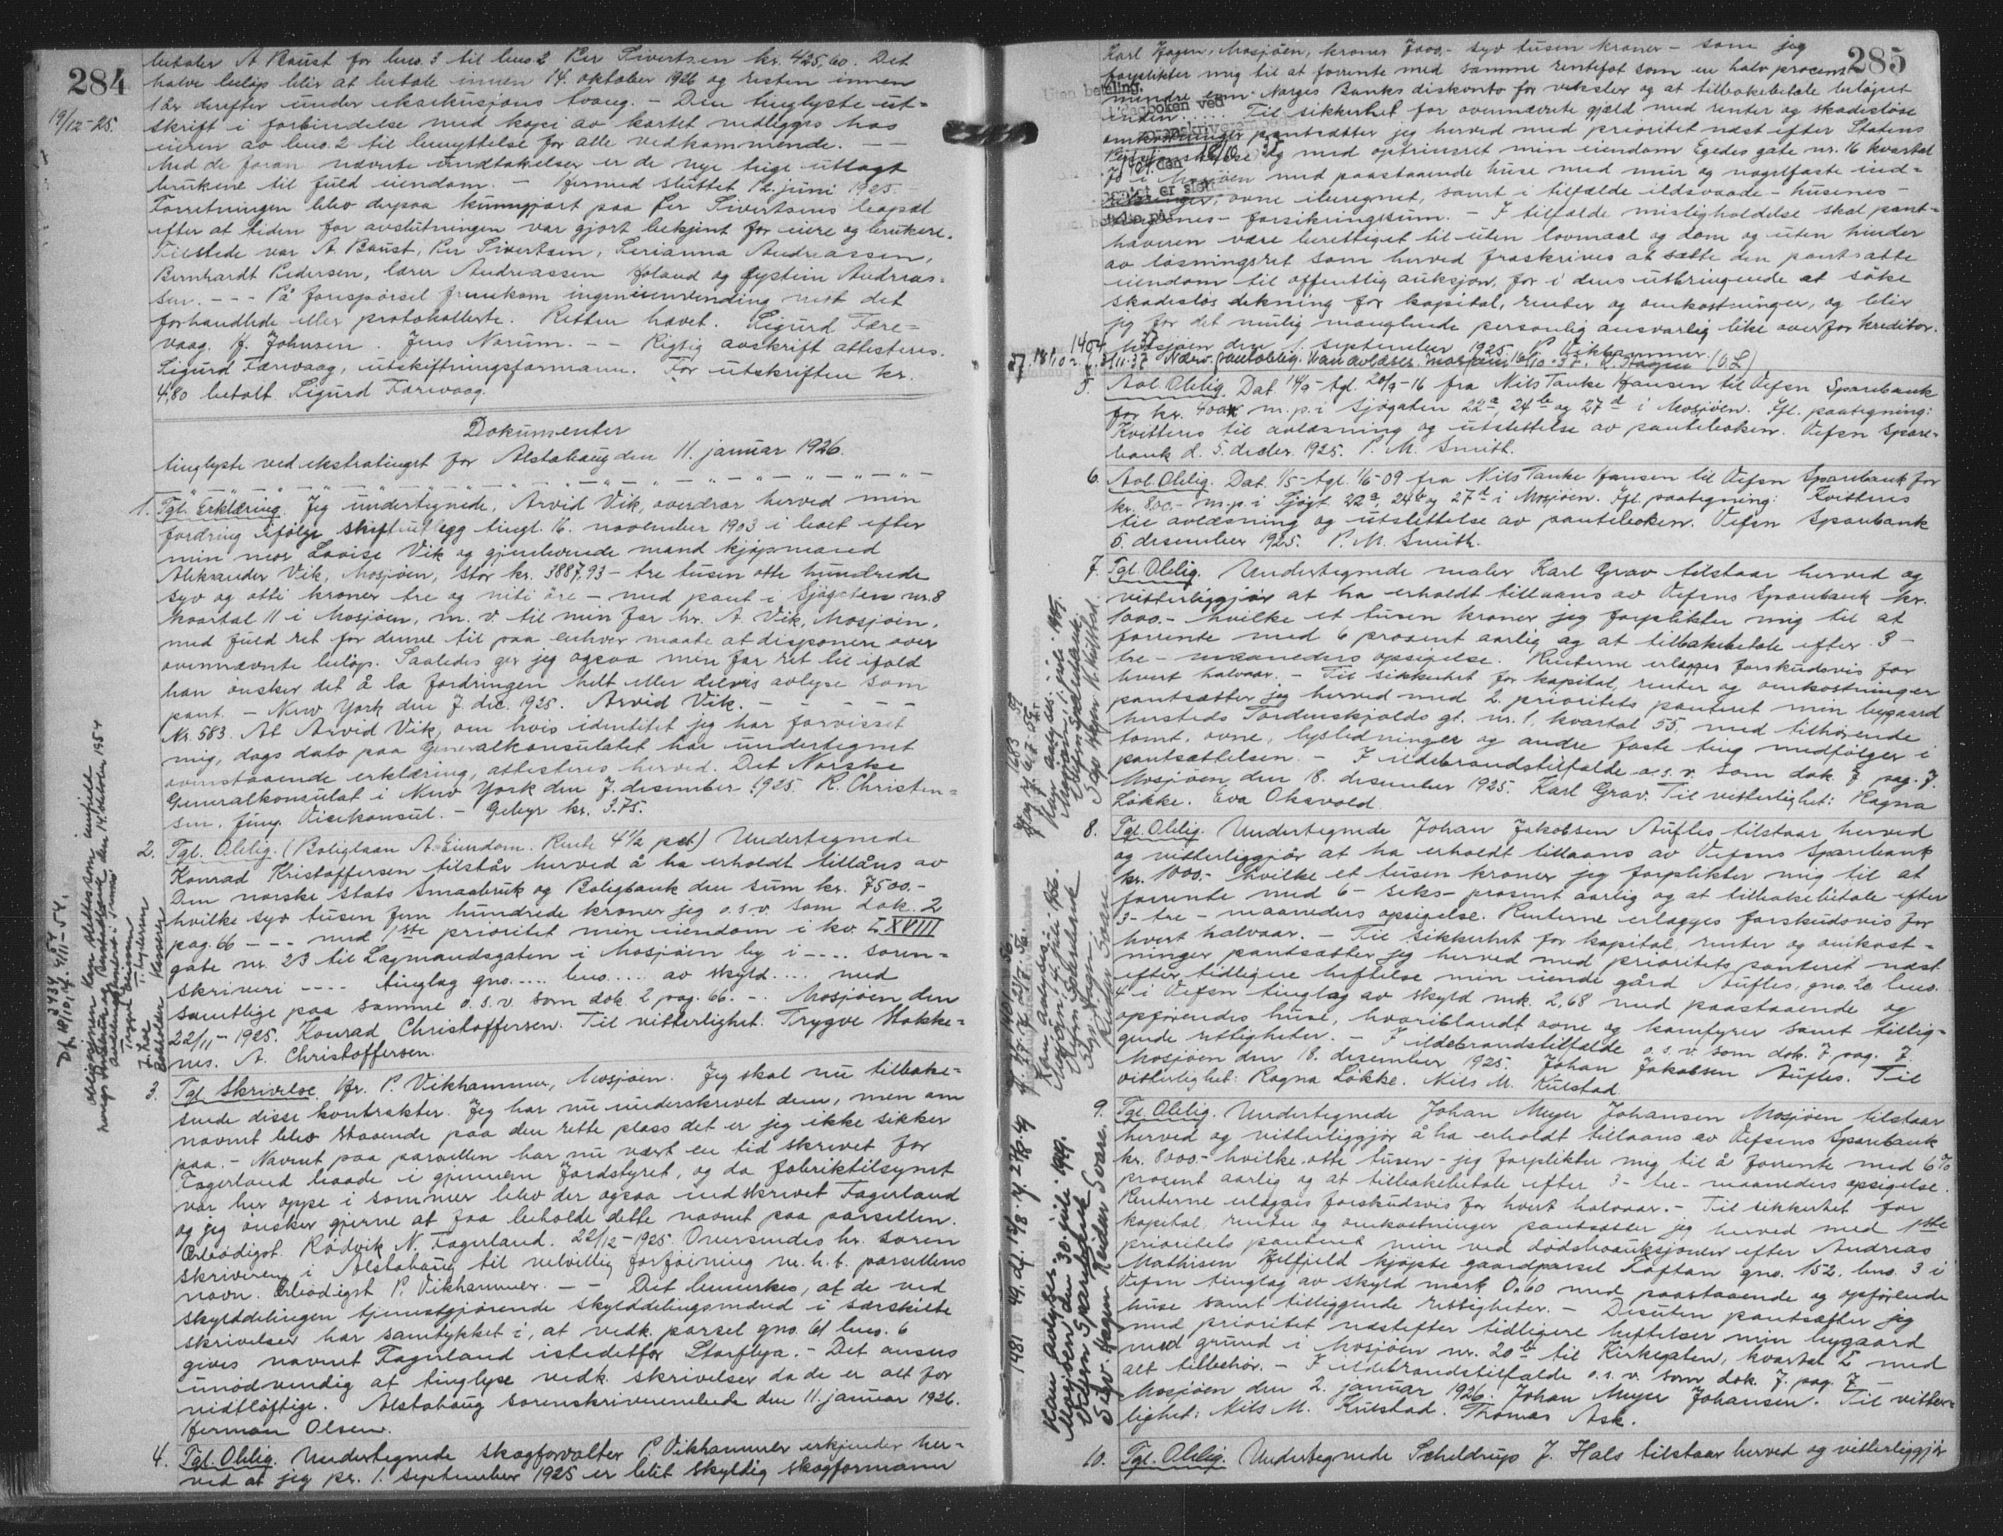 284
19/12-25.
betaler A Baust for bno. 3 til bno 2 Per Sivertsen kr. 425.60. Det
halve beløp blir at betale innen 14. oktober 1926 og resten innen
1 år derefter under eksekusjons tvang. – Den tinglyste ut-
skrift i forbindelse med kopi av kartet nedlægges hos
eieren av bno. 2 til benyttelse for alle vedkommende. – –
Med de foran nævnte undtakelser er de nye teige utlagt
brukene til fuld eiendom. – Hermed sluttet 12. juni 1925.
Forretningen blev derpaa kunngjort paa Per Sivertsens bopæl
efter at tiden for avslutningen var gjort bekjent for eiere og brukere.
Tilstede var A. Baust, Per Sivertsen, Serianna Andreassen,
Bernhardt Pedersen, lærer Andreassen Holand og Øystein Andreas-
sen. – – – På forespørsel fremkom ingen innvending mot det
forhandlede eller protokollerte. Retten hævet. Sigurd Fære-
vaag. H. Johnsen. Jens Norum. – – Rigtig avskrift attesteres.
Sigurd Færevaag, utskiftningsformann. For utskriften kr.
4,80 betalt. Sigurd Færevaag.
Dokumenter
tinglyste ved ekstratinget for Alstahaug den 11. januar 1926.
1. Tgl. Erklæring. Jeg undertegnede, Arvid Vik, overdrar herved min
fordring ifølge skifteutlegg tingl. 16. november 1903 i boet efter
min mor Lovise Vik og gjenlevende mand kjøpmand
Aleksander Vik, Mosjøen, stor kr. 3887,93 – tre tusen otte hundrede
syv og otti kroner tre og niti øre – med pant i Sjøgaten nr. 8
kvartal 11 i Mosjøen, m. v. til min far hr. A. Vik, Mosjøen,
med fuld ret for denne til paa enhver maate at disponere over
ovennævnte beløp. Saaledes gir jeg ogsaa min far ret til ifald
han ønsker det å la fordringen helt eller delvis avlyse som
pant. – New York den 7. dec. 1925. Arvid Vik. – – –
Nr. 583. At Arvid Vik, om hvis identitet jeg har forvisset
mig, dags dato paa Generalkonsulatet har undertegnet
ovenstaaende erklæring, attesteres herved. Det Norske
Generalkonsulat i New York den 7. desember 1925. R. Christen-
sen, fung. Visekonsul. – Gebyr kr. 3.75.
2. Tgl. Oblig. (Boliglaan A. Eiendom. Rente 4 1/2 pct) Undertegnede
Konrad Kristoffersen tilstår herved å ha erholdt tillåns av
Den norske stats Småabruk og Boligbank den sum kr. 7500.–
hvilke syv tusen fem hundrede kroner jeg o.s.v. som dok. 2
pag. 66 – – – med 1ste prioritet min eiendom i kv. L XVIII
gate nr. 23 til Lagmandsgaten i Mosjøen by i –.... soren-
skriveri – – – – tinglag gno. .... bno. .... av skyld .... med
samtlige paa samme o.s.v. som dok. 2 pag. 66. – . Mosjøen den
22/11 – 1925. Konrad Christoffersen. Til vitterlighet: Trygve Stokke-
nes. A. Christoffersen.
3. Tgl. Skrivelse. Hr. P. Vikhammer, Mosjøen. Jeg skal nu tilbake-
sende disse kontrakter. Jeg har nu underskrevet dem, men om
navnet blev staaende paa den rette plass det er jeg ikke sikker
paa. – Navnet paa parsellen har nu vært en tid skrevet for
Fagerland baade i gjennem Jordstyret, og da fabriktilsynet
var her oppe i sommer blev der ogsaa indskrevet Fagerland
og jeg ønsker gjerne at faa beholde dette navnet paa parsellen.
Ærbødigst. Rødvik N. Fagerland. 22/12 – 1925. Oversendes hr. soren
skriveren i Alstahaug til velvillig forføining m. h. t. parsellens
navn. Ærbødigst P. Vikhammer. – – Det bemerkes, at de ved
skylddelingen tjenestgjørende skylddelingsmænd i særskilte
skrivelser har samtykket i, at vedk. parsel gno. 61 bno. 6
gives navnet Fagerland istedetfor Storflya. – Det ansees
unødvendig at tinglyse vedk. skrivelser da de er alt for
vidtløftige. Alstahaug sorenskriverembede den 11. januar 1926.
Herman Olsen.
4. Tgl. Oblig. Undertegnede skogforvalter P. Vikhammer erkjender her-
ved at jeg pr. 1. september 1925 er blit skyldig skogformann
285
Karl Hagen, Mosjøen, kroner 7000.– syv tusen kroner – som jeg
forplikter mig til at forrente med samme rentefot som en halv procent
mindre enn Norges Banks diskonto for veksler og at tilbakebetale beløpet
inden ...... Til sikkerhet for ovennævnte gjæld med renter og skadesløse
omkostninger pantsætter jeg herved med prioritet næst efter Statens
og med optrinsret min eiendom Egedes gate nr. 16 kvartal
i Mosjøen med paastaaende huse med mur og nagelfaste ind-
retninger, ovne iberegnet, samt i tilfælde ildsvaade – husenes –
ovnenes – forsikringssum. – I tilfælde misligholdelse skal pant-
haveren være berettiget til uten lovmaal og dom og uten hinder
av løsningsret som herved fraskrives at sætte den pantsatte
eiendom til offentlig auksjon, for i dens utbringende at søke
skadesløs dekning for kapital, renter og omkostninger, og blir
jeg for det mulig manglende personlig ansvarlig like overfor kreditor.
Mosjøen den 1. september 1925. P. Vikhammer.
Nærv. pantoblig. kan avlæses. Mosjøen 16/10-37. K. Hagen (O.L)
5. Avl. Oblig. Dat. 14/9 – tgl. 20/9 – 16 fra Nils Tanke Hansen til Vefsn Sparebank
for kr. 4000 m.p. i Sjøgaten 22a, 24b og 27d i Mosjøen. Ifl. paategning:
Kvitteres til avlæsning og utslettelse av panteboken. Vefsn Spare-
bank d. 5. decbr. 1925. P. M. Smith.
6. Avl. Oblig. Dat. 1/5 – tgl. 1/6 – 09 fra Nils Tanke Hansen til Vefsn Sparebank for
kr. 800.– m.p. i Sjøgt. 22a, 24b og 27d i Mosjøen. Ifl. paategning: Kvitteres
til avlæsning og utslettelse av panteboken. Vefsn Sparebank
5. desember 1925. P. M. Smith.
7. Tgl. Oblig. Undertegnede maler Karl Grav tilstaar herved og
vitterliggjør at ha erholdt tillaans av Vefsns Sparebank kr.
1000.– hvilke et tusen kroner jeg forplikter mig til at
forrente med 6 prosent aarlig og at tilbakebetale efter 3 –
tre – maaneders opsigelse. Renterne erlægges forskudsvis for
hvert halvaar. – Til sikkerhet for kapital, renter og omkostninger
pantsætter jeg herved med 2. prioritets panteret min bygaard
husteds Tordenskjolds gt. nr. 1, kvartal 55, med tilhørende
tomt, ovne, lysledninger og andre faste ting medfølger i
pantsættelsen. – I ildebrandstilfælde o.s.v. som dok. 7 pag. 7.
Mosjøen den 18. desember 1925. Karl Grav. Til vitterlighet: Ragna
Løkke. Eva Oksvold.
8. Tgl. Oblig. Undertegnede Johan Jakobsen Aufles tilstaar herved
og vitterliggjør at ha erholdt tillaans av Vefsns Sparebank
kr. 1000.– hvilke et tusen kroner jeg forplikter mig til at
forrente med 6 – seks – prosent aarlig og at tilbakebetale efter
3 – tre – maaneders opsigelse. Renterne erlægges forskudsvis for
hvert halvaar. – Til sikkerhet for kapital, renter og omkost-
ninger pantsætter jeg herved med prioritets panteret næst
efter tidligere heftelse min eiende gård Aufles, gno. 20 bno.
4 i Vefsn tinglag av skyld mk. 2,68 med paastaaende og
opførendes huse, hvoriblandt ovne og komfyrer samt tillig-
gende rettigheter. – I ildebrandstilfælde o.s.v. som dok. 7 pag. 7.
Mosjøen den 18. desember 1925. Johan Jakobsen Aufles. Til
vitterlighet: Ragna Løkke. Nils M. Kulstad.
9. Tgl. Oblig. Undertegnede Johan Meyer Johansen Mosjøen tilstaar
herved og vitterliggjør å ha erholdt tillaans av Vefsens Sparebank
kr. 8000.– hvilke otte tusen – jeg forplikter mig til å forrente med 6%
prosent aarlig og at tilbakebetale efter 3 – tre – maaneders opsigelse.
Renterne erlægges forskudsvis for hvert halvaar. – Til sikkerhet for
kapital, renter og omkostninger pantsætter jeg herved med 1ste
prioritets panteret min ved dødsboauksjonen efter Andreas
Mathisen Helfjeld kjøpte gaardparsel Toftan gno. 152 bno. 3 i
Vefsn tinglag av skyld mark 0,60 med paastaaende og opførende
huse samt tilliggende rettigheter. – Desuten pantsætter jeg
med prioritet næstefter tidligere heftelser min bygaard
med grund i Mosjøen nr. 20b til Kirkegaten, kvartal I med
alt tilbehør. – I ildebrandstilfælde o.s.v. som dok. 7. pag. 7 –
Mosjøen den 2. januar 1926. Johan Meyer Johansen. Til vitter-
lighet: Nils M. Kulstad. Thomas Ask.
10. Tgl. Oblig. Undertegnede Scheldrup J. Hals tilstaar herved og vitterliggjør